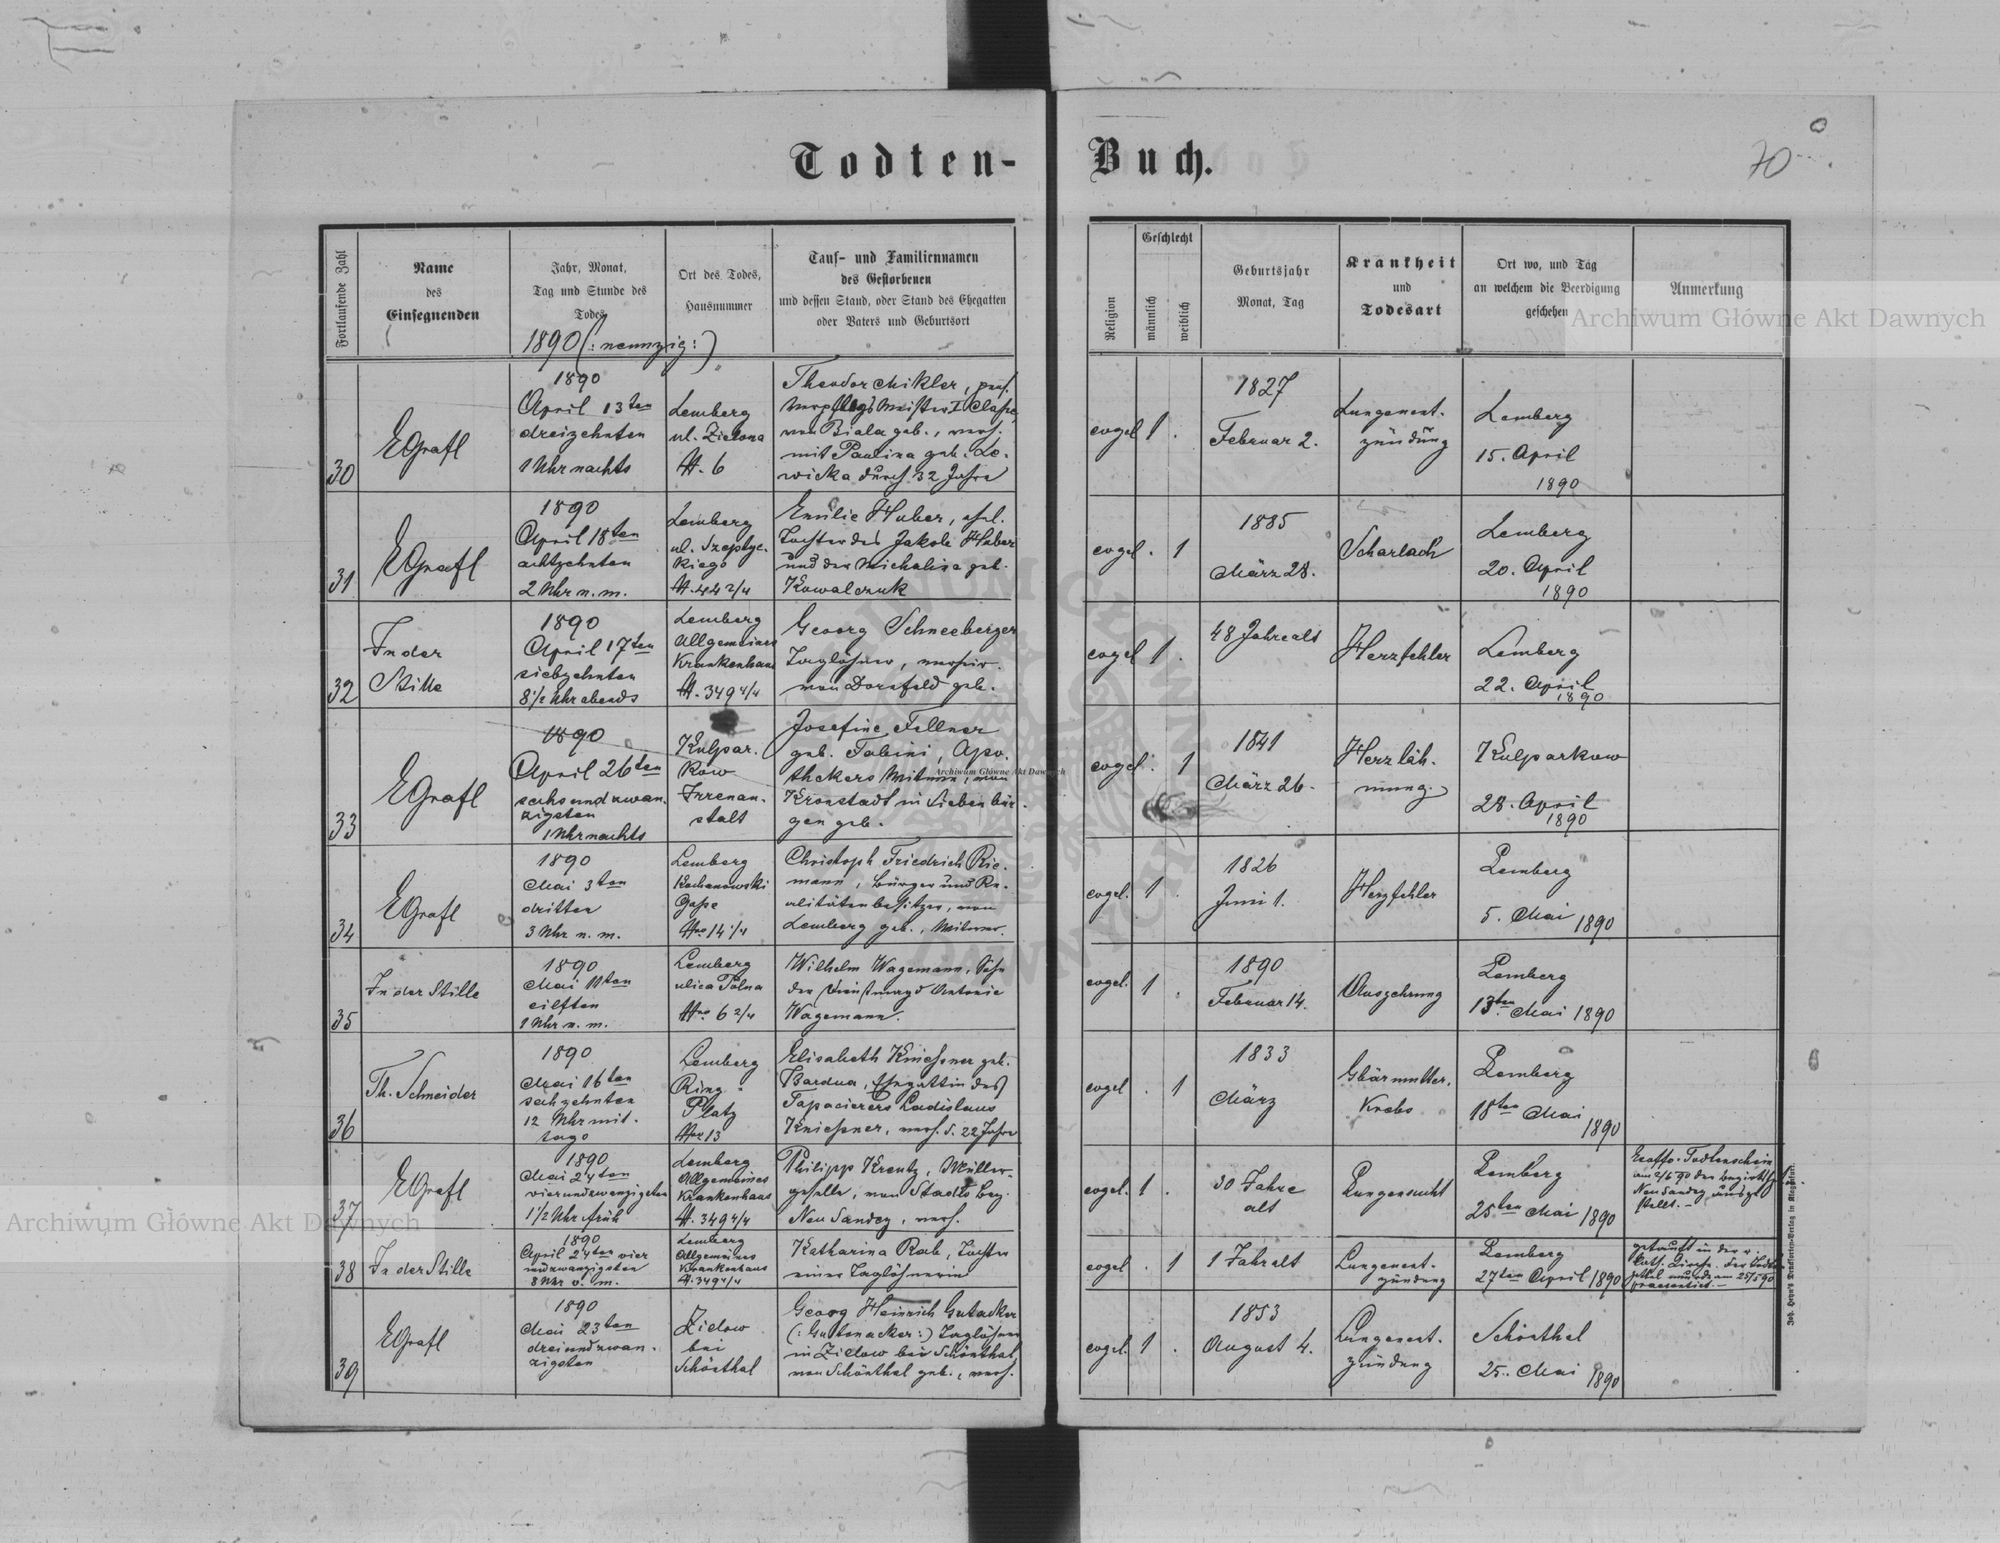 Todten-Buch.
70
Fortlaufende Zahl
Name
des
Einsegnenden
Jahr, Monat,
Tag und Stunde des
Todes
1890 (: neunzig :)
Ort des Todes,
Hausnummer
Tauf- und Familiennamen
des Gestorbenen
und dessen Stand, oder Stand des Ehegatten
oder Vaters und Geburtsort
Religion
Geschlecht
männlich
weiblich
Geburtsjahr
Monat, Tag
Krankheit
und
Todesart
Ort wo, und Tag
an welchem die Beerdigung
geschehen
Anmerkung
Archiwum Główne Akt Dawnych
30
EGrafl
1890
April 13ten
dreizehnten
1 Uhr nachts
Lemberg
ul. Zielona
N. 6
Theodor Mikler, pens.
Verpflegs Meister I Classe,
von Biala geb., verh.
mit Paulina geb. Le-
wicka durch 32 Jahre
evgel
1 .
1827
Februar 2.
Lungenent-
zündung
Lemberg
15. April
1890
31
EGrafl
1890
April 18ten
achtzehnten
2 Uhr n. m.
Lemberg
ul. Szeptyc-
kiego
N. 44 2/4
Emilie Huber, ehel.
Tochter des Jakob Huber
und der Michalina geb.
Kowalczuk
evgel
. 1
1885
März 28.
Scharlach
Lemberg
20. April
1890
32
In der
Stille
1890
April 17ten
siebzehnten
8 1/2 Uhr abends
Lemberg
Allgemeines
Krankenhaus
N. 349 4/4
Georg Schneeberger
Taglöhner, verheir.
von Dornfeld geb.
evgel
1 .
48 Jahre alt
Herzfehler
Lemberg
22. April
1890
33
EGrafl
1890
April 26ten
sechsundzwan-
zigsten
1 Uhr nachts
Kulpar-
kow
Irrenan-
stalt
Josefine Fellner
geb. Fabini, Apo-
thekers Witwe, von
Kronstadt in Siebenbür-
gen geb.
evgel
. 1
1841
März 26.
Herzläh-
mung.
Kulparkow
28. April
1890
Archiwum Główne Akt Dawnych
34
EGrafl
1890
Mai 3ten
dritten
3 Uhr n. m.
Lemberg
Kochanowski
Gasse
Nro 14 1/4
Christoph Friedrich Rie-
mann, Bürger und Re-
alitätenbesitzer, von
Lemberg geb., Witwer.
evgel.
1 .
1826
Juni 1.
Herzfehler
Lemberg
5. Mai 1890
35
In der Stille
1890
Mai 11ten
eilften
1 Uhr n. m.
Lemberg
ulica Polna
Nro 6 2/4
Wilhelm Wagemann, Sohn
der Dienstmagd Antonie
Wagemann.
evgel.
1 .
1890
Februar 14.
Auszehrung
Lemberg
13ten Mai 1890
36
Th. Schneider
1890
Mai 16ten
sechzehnten
12 Uhr mit-
tags
Lemberg
Ring-
Platz
Nro 13
Elisabeth Kniessner geb.
Bardua, Ehegattin des
Tapacierers Ladislaus
Kniessner, verh. d. 22 Jahre
evgel
. 1
1833
März
Gbärmutter-
Krebs
Lemberg
18ten Mai
1890
37
EGrafl
1890
Mai 24ten
vierundzwanzigsten
1 1/2 Uhr früh
Lemberg
Allgemeines
Krankenhaus
N. 349 4/4
Philipp Kreutz, Müller-
geselle, von Stadlo Bez.
Neu Sandez, verh.
evgel.
1 .
30 Jahre
alt
Lungensucht
Lemberg
25ten Mai 1890
Exoffo-Todtenschein
am 2/6 90 der
Neu Sandez ausge-
stellt.-
Archiwum Główne Akt Dawnych
38
In der Stille
1890
April 24ten vier
undzwanzigsten
8 Uhr v. m.
Lemberg
Allgemeines
Krankenhaus
N. 349 4/4
Katharina Rab, Tochter
einer Taglöhnerin
evgel
. 1
1 Jahr alt
Lungenent-
zündung
Lemberg
27ten April 1890
getauft in der r.
kath. Kirche. Der Todten-
zettel wurde am 25/5 90
praesentirt.-
39
EGrafl
1890
Mai 23ten
dreiundzwan-
zigsten
Zielow
bei
Schönthal
Georg Heinrich Gutacker
(: Guttenacker :) Taglöhner
in Zielow bei Schönthal,
von Schönthal geb., verh.
evgel.
1 .
1853
August 4.
Lungenent-
zündung
Schönthal
25. Mai 1890
Joh. Heyn's Drucksorten-Verlag in Klagenfurt.